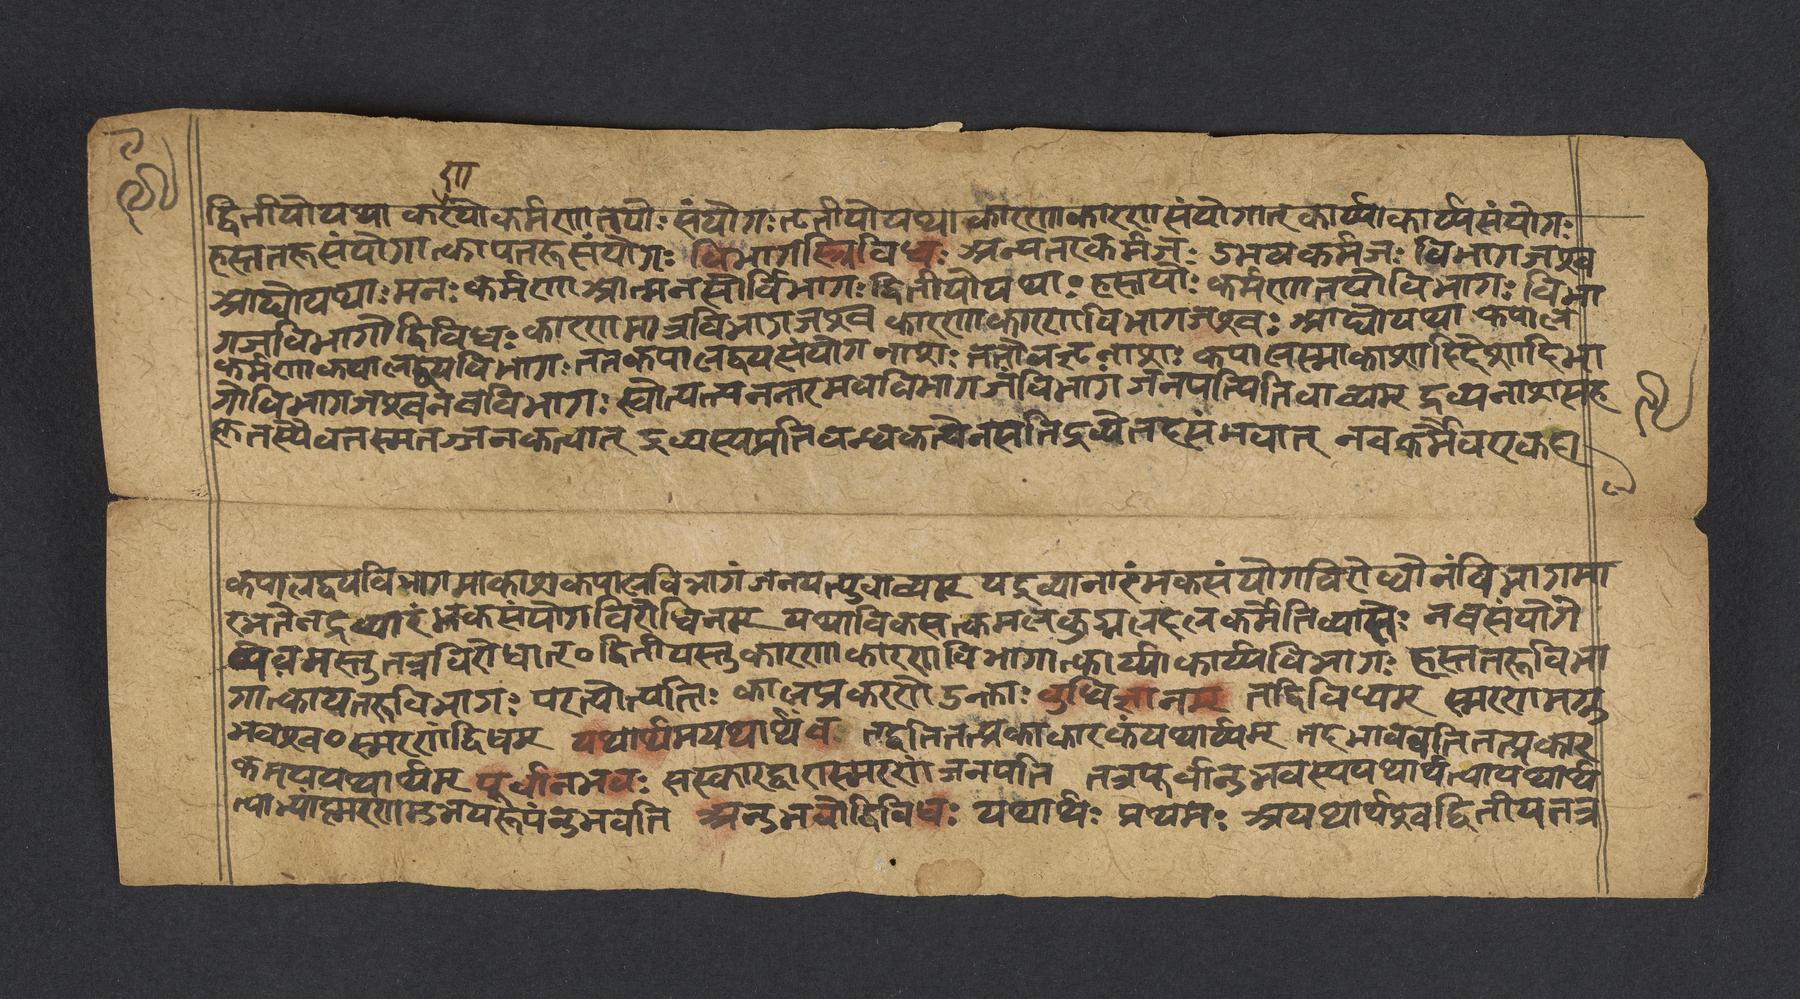 द्वितीयोयथा कर्पयोकर्मणातयोः संयोगः तृतीयोयथा कारणाकारणसंयोगात् कार्य्याकार्य्यसंयोगः
हस्ततरूसंयोगात्कायतरूसंयोगः विभागस्त्रिविधः अन्यतरकर्मजः उभयकर्मजः विभागजश्च
आद्योयथाः मनः कर्मणा आत्ममनसोर्विभागः द्वितीयोयथाः हस्तयोः कर्मणातयोविभागः विभा
गजविभागोद्विविधः कारणमात्रविभागजश्च कारणाकारणविभागजश्चः आद्योयथा कपाले
कर्मणाकपालद्वयविभागः ततकपालद्वयसंयोगनाशः ततोघटनाशः कपालस्माकाशादिदेशादिभा
गोविभागजश्चनचविभागः स्वोत्पत्त्यनन्तरमेवविभागजंविभागं जनयत्वितिवाच्यम् द्रव्यनाशसह
कृतस्यैवतस्मतज्जनकत्वात् द्रव्यस्यप्रतिबन्धकत्वेनसतिद्रव्येतदसंभवात् नचकर्मैवएकदा
कपालद्वयविभागमाकाशकपालविभागं जनयत्युवाच्यम् यद्रव्यानारंभकसंयोगविरोधीनंविभागमा
रभतेनद्रव्यारंभकसंयोगविरोधिनम् यथाविकसत्कमलेकुड्मलेदलेकर्मेतिव्याप्तेः नचसंयोगे
प्येवमस्तु तत्रविरोधात्॰ द्वितीयस्तु कारणाकारणविभागात्कार्य्याकार्य्यविभागः हस्ततरूविभा
गात्कायतरूविभागः परत्वोत्पत्तिः कालेप्रकरणेऽनुक्ताः बुधिर्ज्ञानम् तद्द्विविधम् स्मरणमनु
भवश्च॰ स्मरणंद्विधम् यथार्थमयथार्थंच तद्वतितत्प्रकाकारकंयथार्थम् तदभाववतितत्प्रकार
कमयथार्थम् पूर्वानभवः संस्कारद्वारास्मरणंजनयति तत्रपूर्वानुभवस्ययथार्थत्वायथार्थ
त्वाभ्यांस्मरणमुभयरूपंनुभवति अनुभवोद्विविधः यथार्थः प्रथमः अयथार्थश्चद्वितीयतत्र